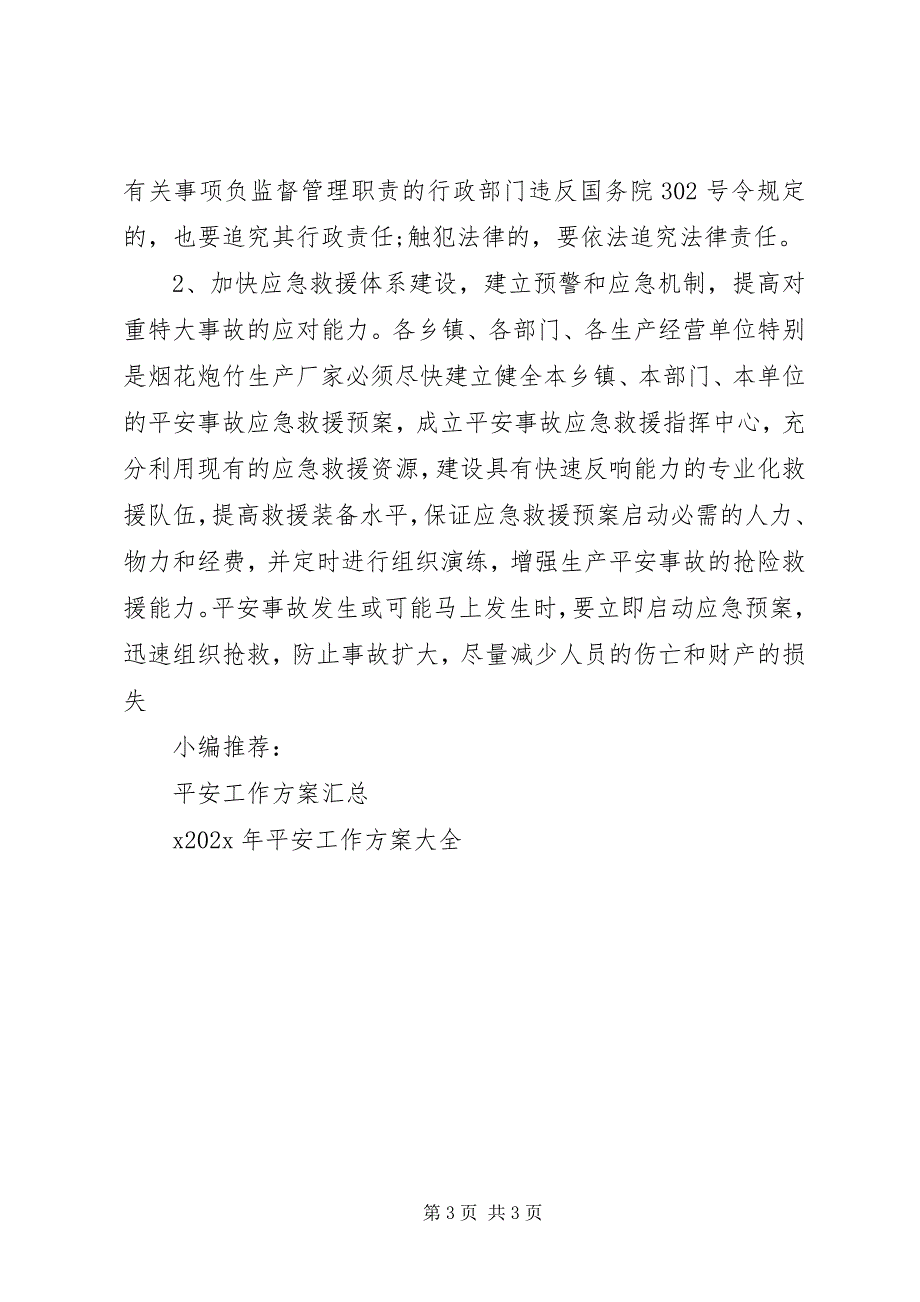 有关事项负监督管理职责的行政部门违反国务院 302 号令规定
的，也要追究其行政责任;触犯法律的，要依法追究法律责任。
2、加快应急救援体系建设，建立预警和应急机制，提高对
重特大事故的应对能力。各乡镇、各部门、各生产经营单位特别
是烟花炮竹生产厂家必须尽快建立健全本乡镇、本部门、本单位
的平安事故应急救援预案，成立平安事故应急救援指挥中心，充
分利用现有的应急救援资源，建设具有快速反响能力的专业化救
援队伍，提高救援装备水平，保证应急救援预案启动必需的人力、
物力和经费，并定时进行组织演练，增强生产平安事故的抢险救
援能力。平安事故发生或可能马上发生时，要立即启动应急预案，
迅速组织抢救，防止事故扩大，尽量减少人员的伤亡和财产的损
失
小编推荐：
平安工作方案汇总
x202x 年平安工作方案大全
第 3 页 共 3 页